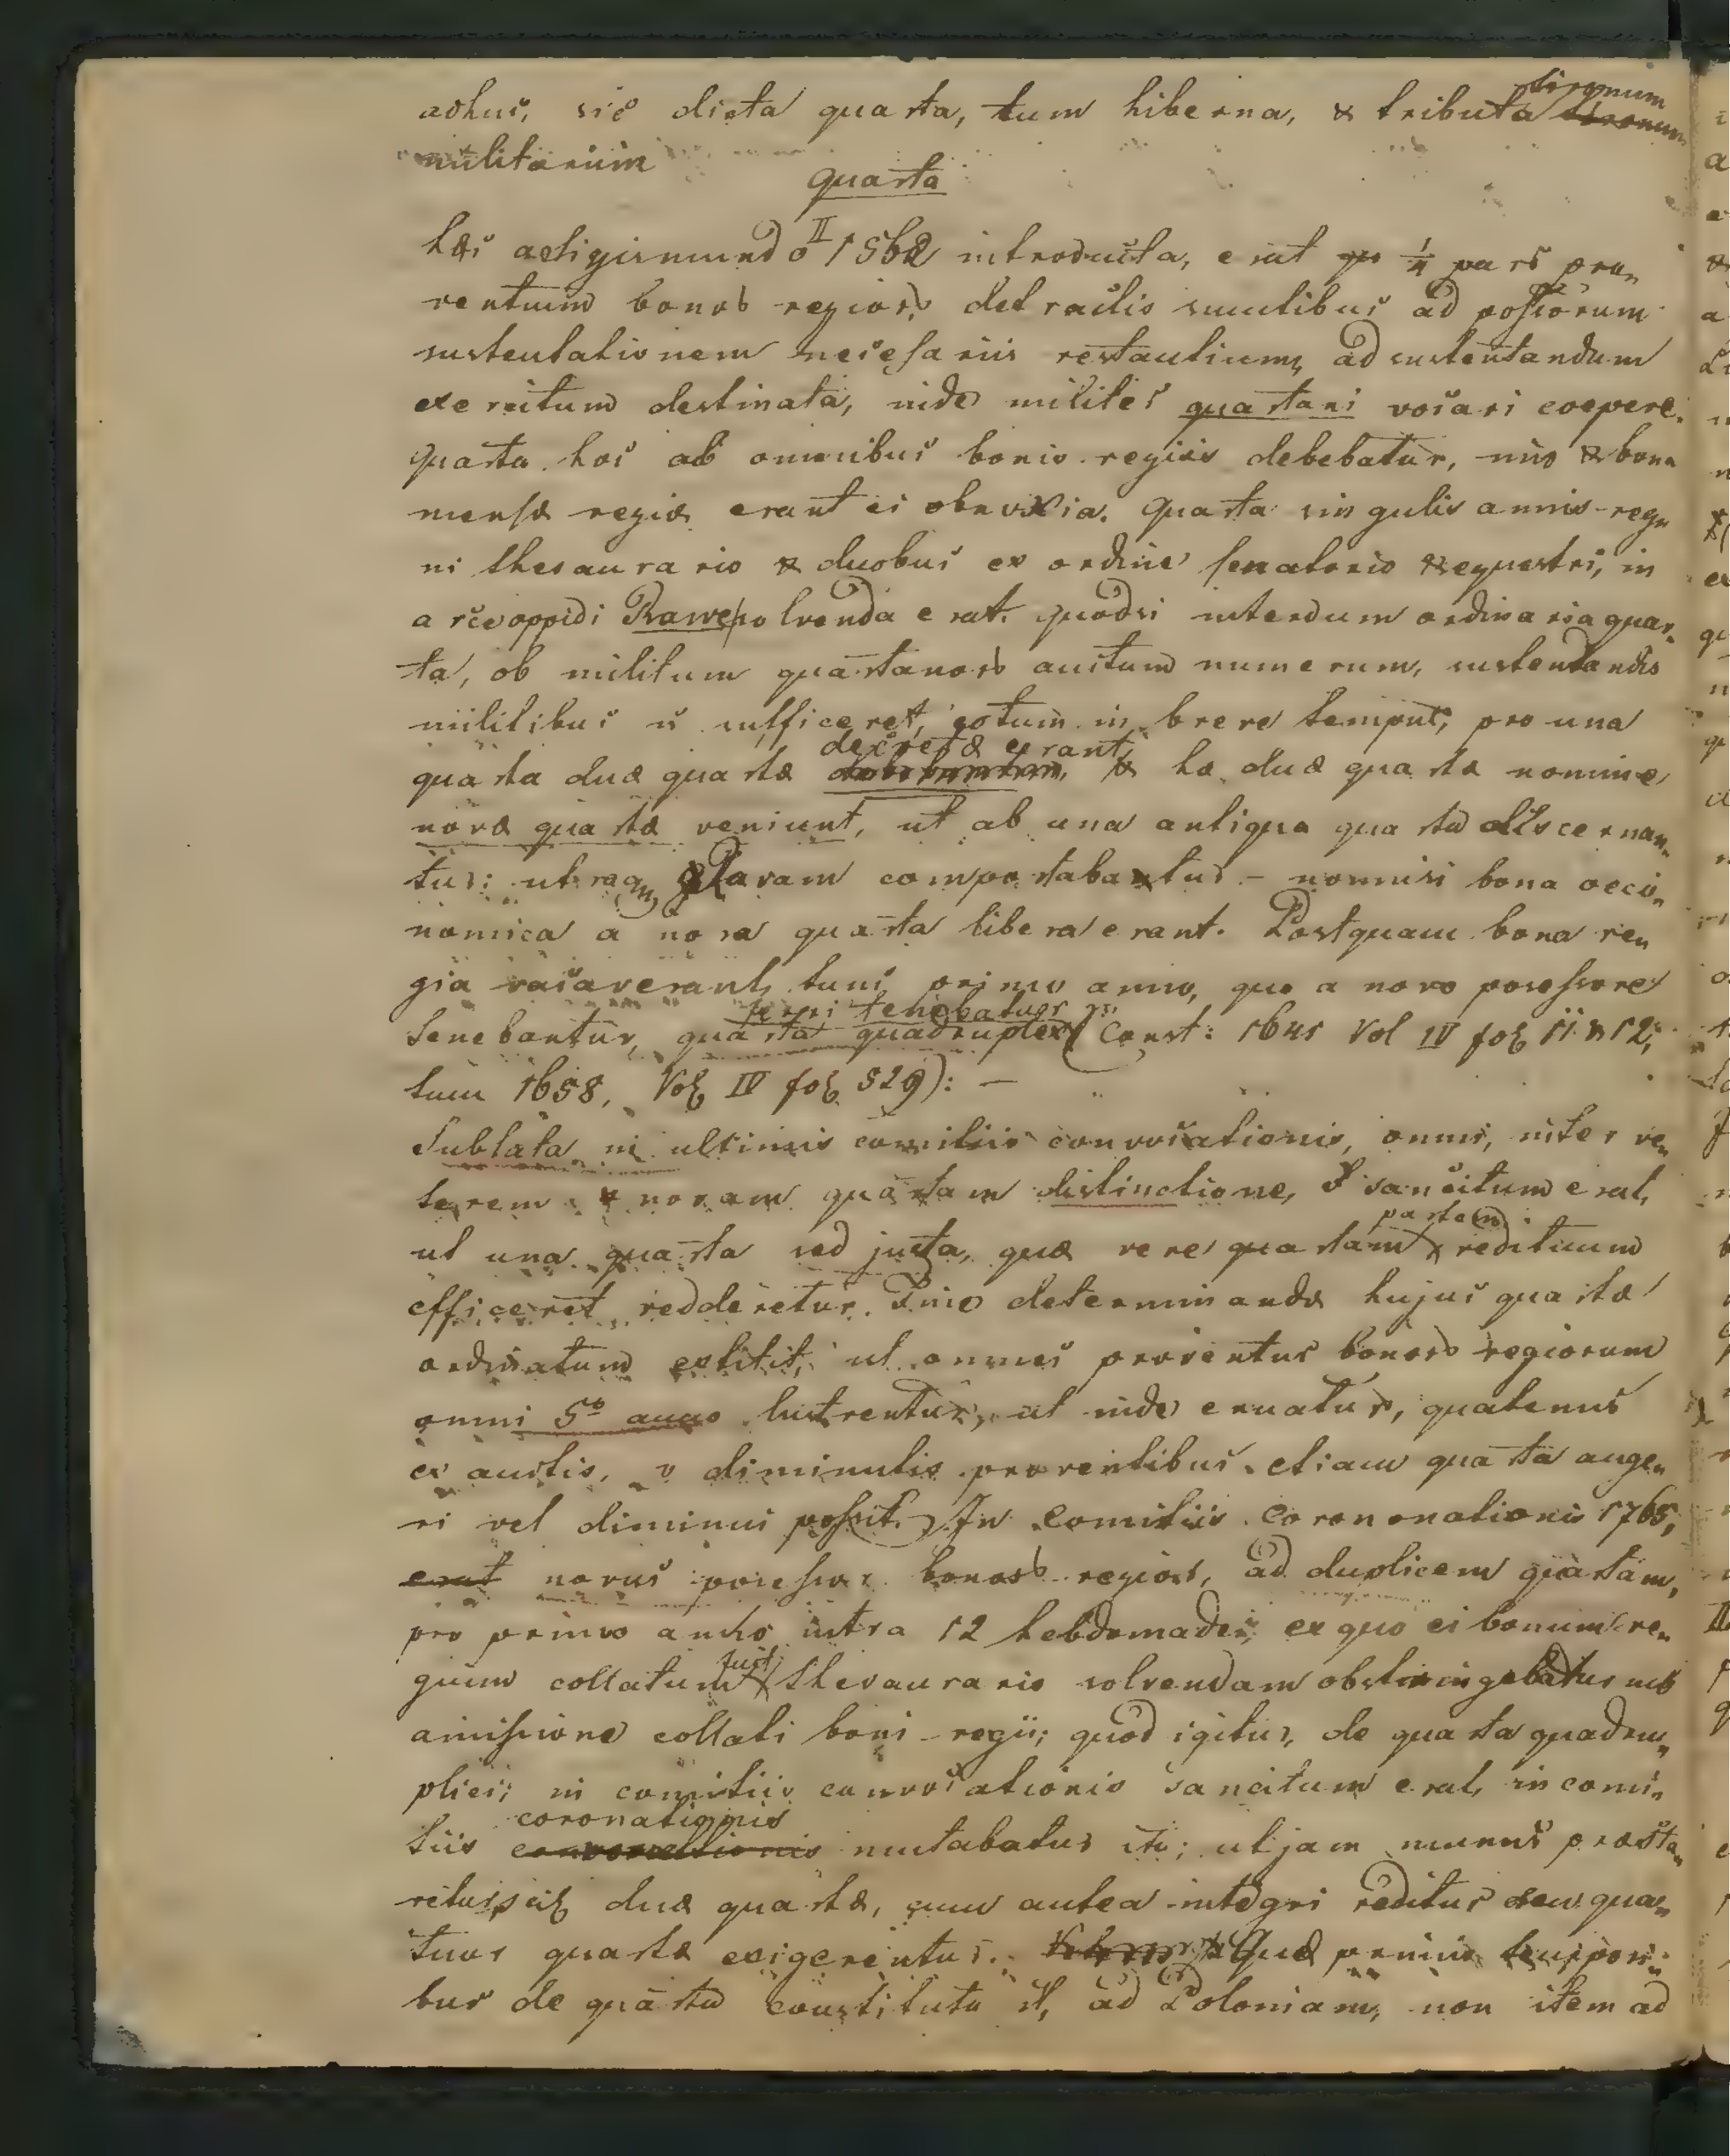 adhuc, sic dicta quarta, tum hiberna, & tributa tironum
militarium
Quarta
hæc a Sigismundo II 1562 introducta, erat ¼ pars pro„
ventuum bonor regior, detractis sumtibus ad posseorum
sustentationem necessariis restantium, ad sustentandum
exercitum destinata, inde milites quartani vocari coepere.
Quarta hoc ab omnibus bonis regiis debebatur, imo & bona
mensæ regiæ erant ei obnoxia. Quarta singulis annis reg„
ni thesaurario & duobus ex ordine senatorio & equestri, in
arce oppidi Rawe solvenda erat. quodsi interdum ordinaria quar„
ta, ob militum quartanor auctum numerum, sustentandis
militibus ñ sufficeret, totum in breve tempus, pro una
quarta duæ quartæ decretæ erant, & hæ duæ quartæ nomine
novæ quartæ veniunt, ut ab una antiqua quarta discernan„
tur: utraq Ravam comportabatur - nonnisi bona oeco„
nomica a nova quarta libera erant. Postquam bona re„
gia vacaverant, tunc primo anno, quo a novo possessore
tenebantur, quarta quadruplex ferri tenebatur (Const: 1641 Vol IV fol 11 & 12;
tum 1658, Vol IV fol 529): —
Sublata in ultimis comitiis convocationis, omni, inter ve„
terem & novam quartam distinctione, sancitum erat,
ut una quarta sed justa, quæ vere quartam partem redituum
efficeret redderetur. Fine determinandæ hujus quartæ
ordinatum extitit, ut omnes proventus bonor regiorum
omni 5to anno lustrentur, ut inde eruatur, quatenus
ex auctis, v diminutis proventibus etiam quarta auge„
ri vel diminui possit. In Comitiis Coronationis 1765,
novus possessor bonor regior, ad duplicem quartam,
pro primo anno intra 12 hebdomades, ex quo ei bonum re„
gium collatum fuit, thesaurario solvendam obstringebatur sub
amissione collati boni regii; quod igitur, de quarta quadru„
plici, in comitiis convocationis sancitum erat, in comi„
tiis coronationis mutabatur ita; ut jam munus præsta„
retur scil duæ quartæ, cum antea integri reditus seu qua„
tuor quartæ exigerentur. Quæ primis tempori„
bus de quarta constituta st, ad Poloniam, non item ad